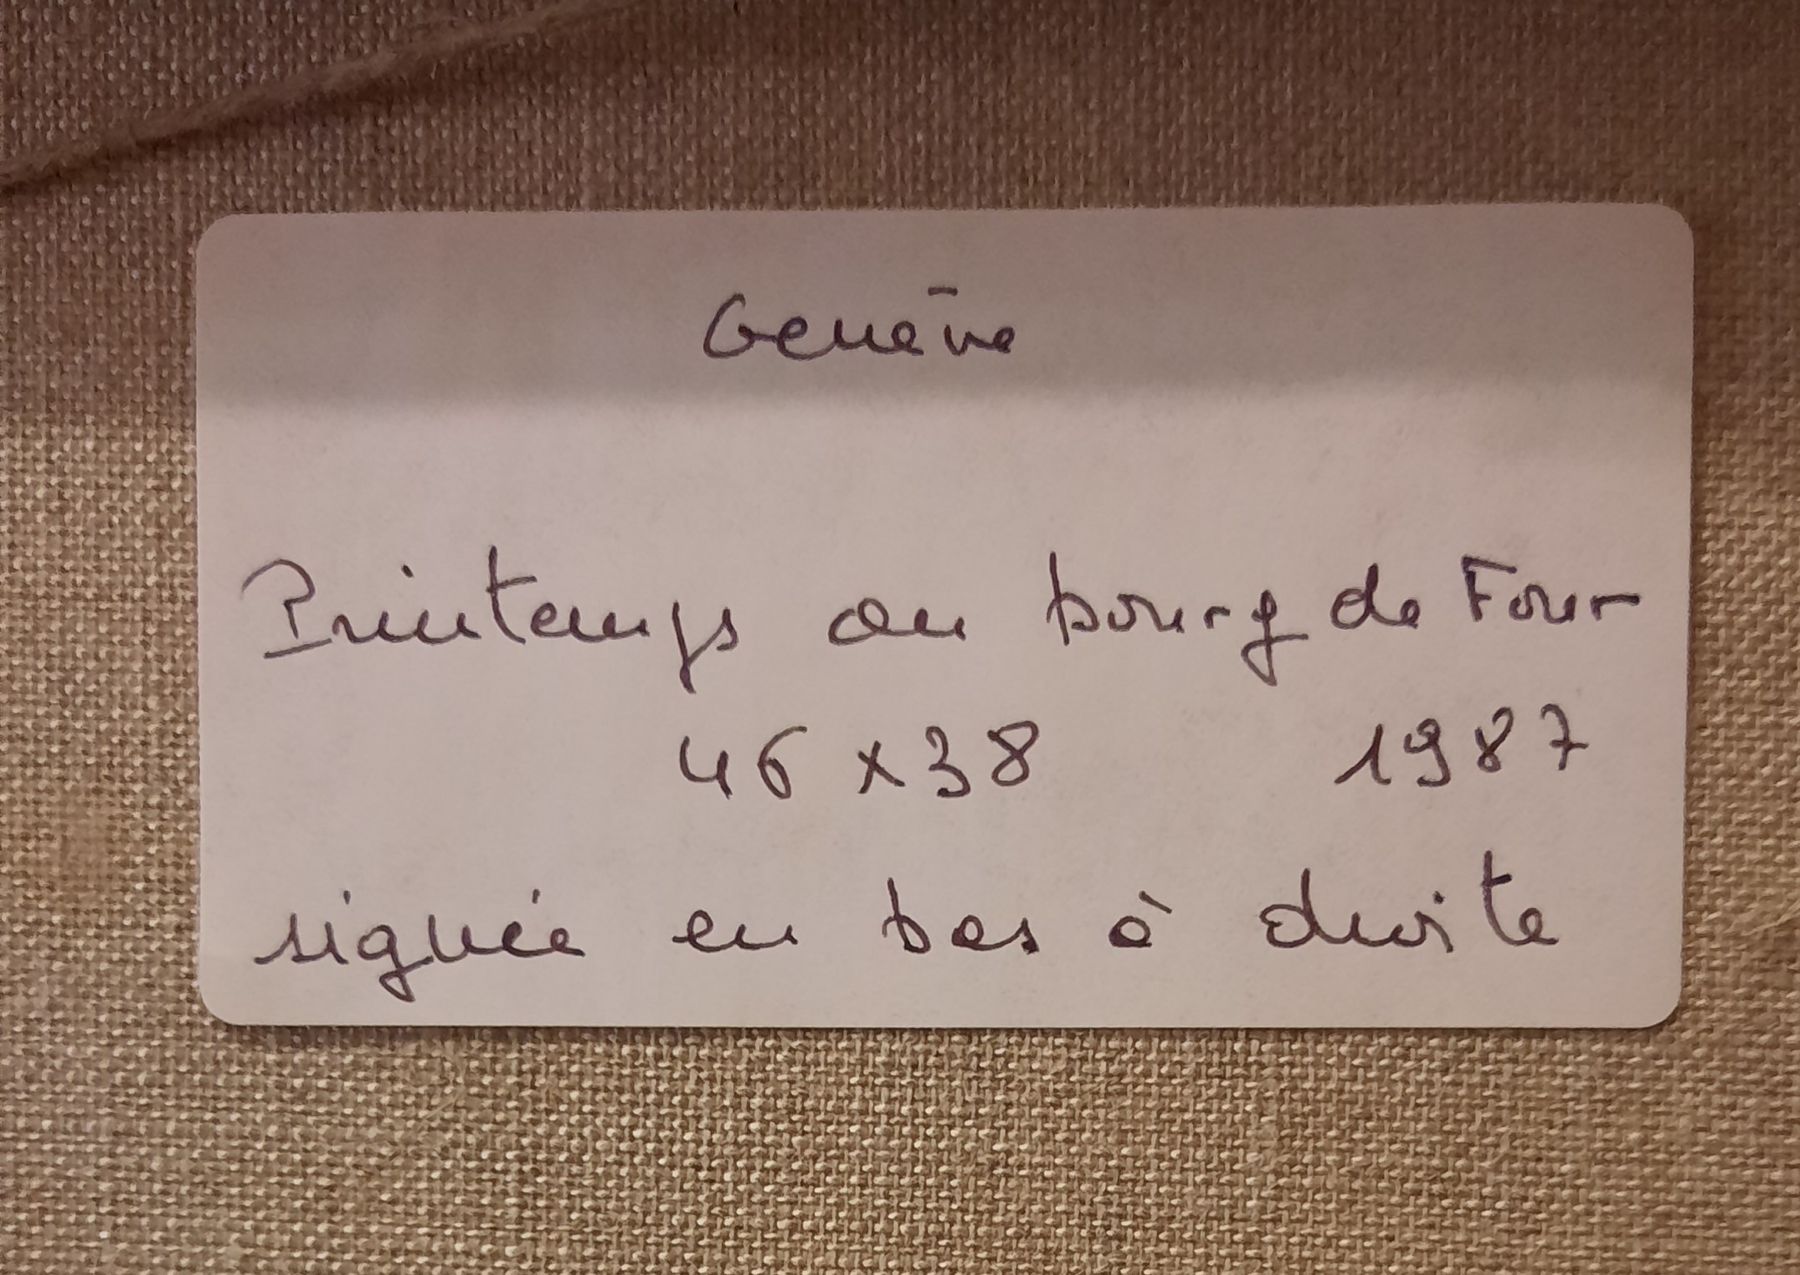 Genève
Printemps au bourg de Four
46 x 38 1987
signée en bas à droite